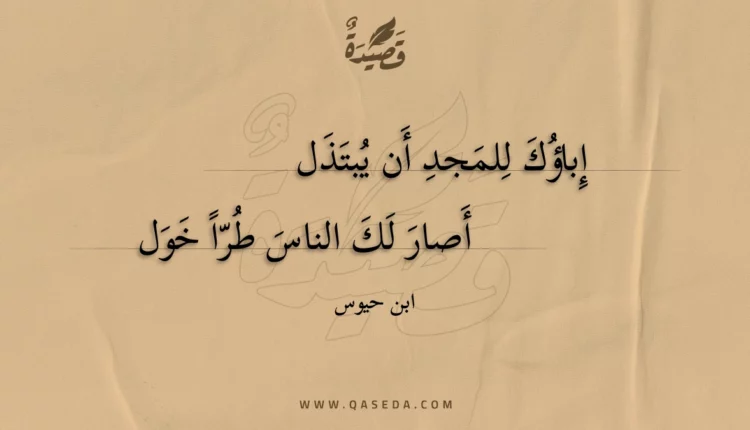 قَصِيْدَةٌ
إِباؤُكَ لِلمَجدِ أَن يُبتَذَل
أَصارَ لَكَ الناسَ طُرّاً خَوَل
ابن حيوس
WWW.QASEDA.COM